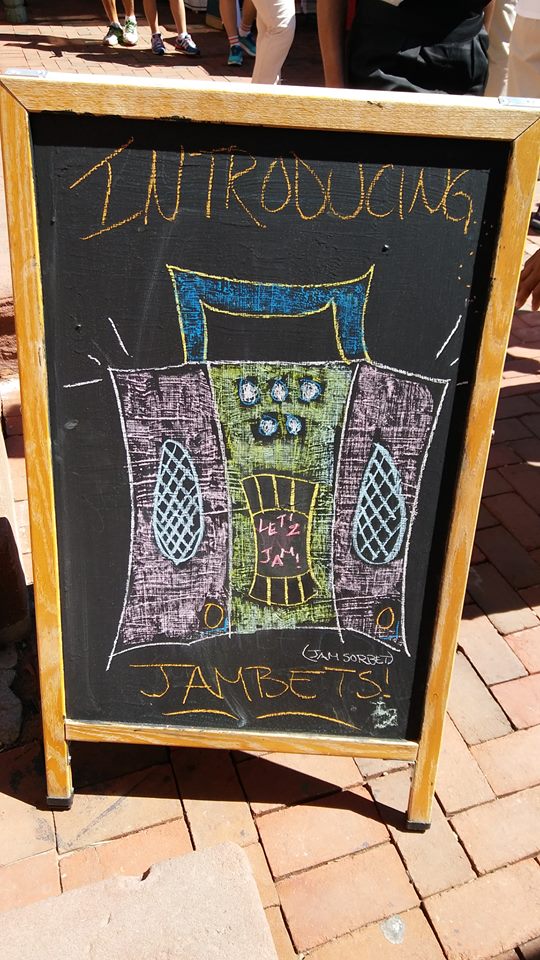 INTRODUCING
LET'Z
JAM!
(JAM SORBET)
JAMBETS!